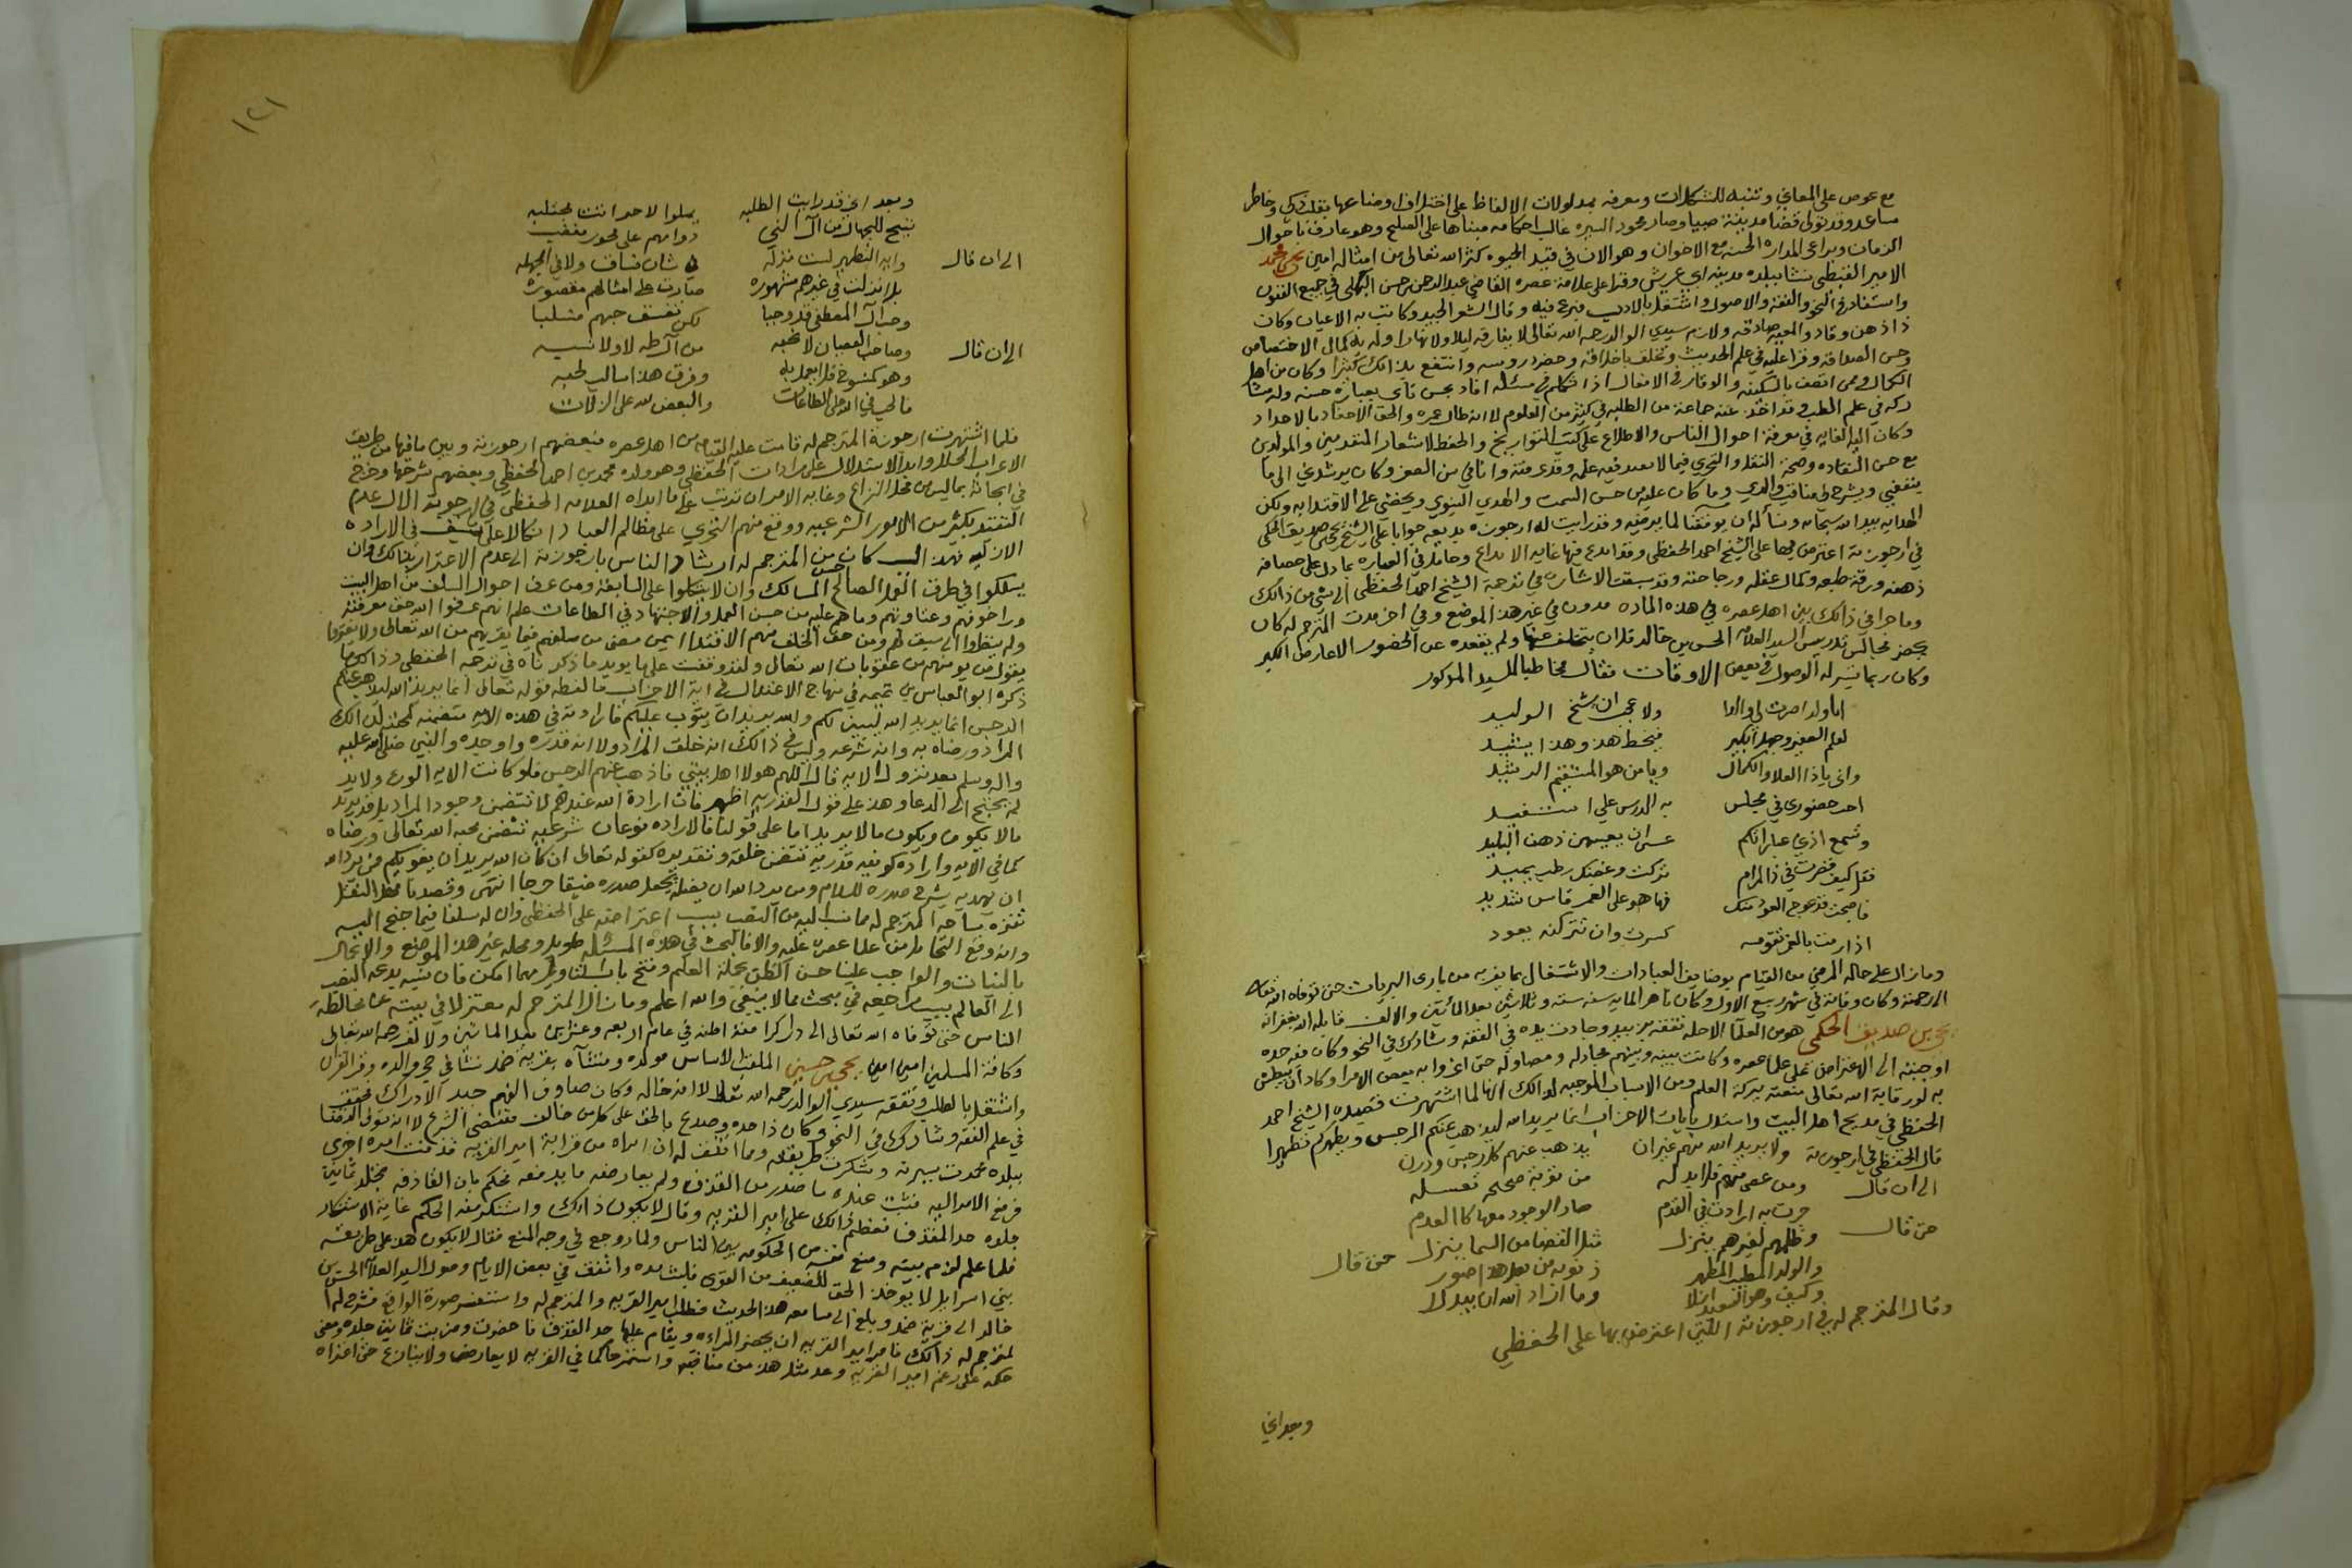 مع غوص على المعاني وتنبه للمشكلات ومعرفه بمدلولات الالفاظ على اختلاف اوضاعها بقلب ذكي وخاطر
مساعد وقد تولى قضا مدينة صبيا وصار محمود السيره غالب احكامه مبناها على الصلح وهو عارف باحوال
الزمان ويراعي المداراه الحسنه مع الاخوان وهو الان في قيد الحيوه كثر الله تعالى من امثاله امين يحيى بن محمد
الامير القبطي نشا ببلده مدينة ابي عريش وقرا على علامة عصره القاضي عبد الرحمن بن حسن البهكلي في جميع الفنون
واستفاد في النحو والفقه والاصول واشتغل بالادب فبرع فيه وقال الشعر الجيد وكاتب به الاعيان وكان
ذا ذهن وقاد والمعيه صادقه ولازم سيدي الوالد رحمه الله تعالى لا يفارقه ليلا ولا نهارا وله به كمال الاختصاص
وحسن الصداقه وقرا عليه في علم الحديث وتخلق باخلاقه وحضر دروسه وانتفع بذالك كثيرا وكان من اهل
الكمال وممن اتصف بالسكينه والوقار في الافعال اذا تكلم في مسئله افاد بحسن تاني بعبارة حسنه وله مشا
ركه في علم الطب وقد اخذ عنه جماعة من الطلبه في كثير من العلوم لانه طال عمره والحق الاحفاد بالاجداد
وكان اليه الغايه في معرفة احوال الناس والاطلاع على كتب التواريخ والحفظ لاشعار المتقدمين والمولدين
مع حسن النقاده وصحة النقل والتحري فيما لا يعيد فيه علمه وقد عرفته وانا في سن الصغر وكان يرشدني الى ما
ينفعني ويشرح لي مناقب والدي وما كان عليه من حسن السمت والهدي النبوي ويحضني على الاقتدا به ولكن
الهدايه بيد الله سبحانه ونسأله ان يوفقنا لما يرضيه وقد رايت له ارجوزه بديعه جوابا على الشيخ يحيى صديق الحكمي
في ارجوزته اعترض فيها على الشيخ احمد الحفظي وقد ابدع فيها غاية الابداع وجا بما في العباره بما دل على حصافة
ذهنه ورقة طبعه وكمال عقله ورجاحته وقد سبقت الاشاره في ترجمة الشيخ احمد الحفظي الى شي من ذالك
وما جرا في ذالك بين اهل عصره في هذه الماده مدون في غير هذا الموضع وفي اخر مدت المترجم له كان
يحضر مجالس تدريس السيد العلامه الحسن بن خالد قل ان يتخلف عنها ولم يقعده عن الحضور الا عارض الكبر
وكان ربما تيسر له الوصول في بعض الاوقات فقال مخاطبا للسيد المذكور
ايا ولدا صرت لي والدا ولا عجب ان يشيخ الوليد
لعلم الصغير وجهل الكبير فيحط هذا وهذا يشيد
واني يا ذا العلا والكمال ويا من هو المستقيم الرشيد
احب حضوري في مجلس به الدرس علي استفيد
وتسمع اذني عباراتكم عسى ان يعيهن ذهن البليد
فقل كيف قصرت في ذا المرام تركت وغصنك رطب يميد
فاصبحت قد عوج العود منك فها هو على الغمز قاس شديد
اذا رمت بالغمز تقويمه كسرت وان تتركنه يعود
وما زال على حاله المرضي من القيام بوظايف العبادات والاشتغال بما يقربه من باري البريات حتى توفاه الله تعالى
الى رحمته وكان وفاته في شهر ربيع الاول وكان ناهز المايه سنه سنة وثلاثين بعد المأتين والالف قابله الله بغفرانه
يحيى بن صديق الحكمي هو من العلما الاجله تفقه بزبيد وجادت يده في الفقه وشارك في النحو وكان فيه حده
اوجبته الى الاعتراض على علما عصره وكانت بينه وبينهم مجادله ومصاوله حتى اغروا به بعض الامرا وكاد ان يبطش
به لو وقاية الله تعالى منعته ببركة العلم ومن الاسباب الموجبه لذالك انها لما اشتهرت قصيدة الشيخ احمد
الحفظي في مديح اهل البيت واستدل بايات الاحزاب انما يريد الله ليذهب عنكم الرجس ويطهركم تطهيرا
قال الحفظي في ارجوزته ولا يريد الله منهم غير ان يذهب عنهم كل رجس ودرن
الى ان قال ومن عصى منهم فلا بد له من توبة صحيحه تغسله
حتى قال جرت به ارادت في القدم صار الوجود معها كالعدم
وظلمهم لغيرهم ينزل مثل القضا من السما ينزل حتى قال
والولد المطيب المطهر ذنوبه من بعد هذا صور
وكيف وهو السعيد ازلا وما اراد الله ان يبدلا
وقال المترجم له في ارجوزته اللتي اعترض بها على الحفظي
وبعد اني
١٢١
وبعد اني قد رايت الطلبه يملوا لاحد اتت مجتلبه
تبيح للجهال من آل النبي دوامهم على فجور مغضب
الى ان قال وايه التطهير ليست منزله في شان فساق ولا في الجهله
بل انزلت في غيرهم مشهوره صارت على امثالهم مقصوره
وحب آل المصطفى قد وجبا لكن تفسق حبهم منسلبا
الى ان قال وصاحب العصيان لا نحبه من آل طه لا ولا نسبه
وهو كمنسوخ فلا يعمل به وفرق هذا سالب لحبه
فالحب في الله على الطاعات والبغض لله على الزلات
فلما اشتهرت ارجوزة المترجم له قامت عليه القيامه من اهل عصره فبعضهم ارجوزته وبين ما فيها من طريق
الاعراب الخلل وابدا الاستدلال على مرادات الحفظي وهو ولده محمد بن احمد الحفظي وبعضهم شرحها وخرج
في ابحاثه بما ليس من محل النزاع وغاية الامر ان ترتب على ما ابداه العلامه الحفظي في ارجوزته الال عدم
التقيد بكثير من الامور الشرعيه ووقع منهم التجري على مظالم العباد اتكالا على سبق في الاراده
الازليه فهذا السبب كان من المترجم له ارشاد الناس بارجوزته الى عدم الاغترار بذالك وان
يسلكوا في طرق العلما الصالح حسن المسالك وان لا يتكلوا على السابقه ومن عرف احوال السلف من اهل البيت
وراخوفهم وعناوتهم وما هم عليه من حسن العمل والاجتهاد في الطاعات علم انهم عرفوا الله حق معرفته
ولم ينظروا الى سبق لهم ومن حق الخلف منهم الاقتدا ايمن مضى من سلفهم فيما يقربهم من الله تعالى ولا يغتروا
يقول من يومنهم من عقوبات الله تعالى ولقد وقفت على ما يويد ما ذكرناه في ترجمة الحفظي وذالك ما
ذكره ابو العباس بن تيميه في منهاج الاعتدال في اية الاحزاب ما لفظه قوله تعالى انما يريد الله ليذهب عنكم
الرجس انما يريد الله ليبين لكم والله يريد ان يتوب عليكم فارادته في هذه الايه متضمنه لمحبته لذالك
المراد ورضاه به وانه شرعه وليس في ذالك انه خلق المراد ولا انه قدره واوجده والنبي صلى الله عليه
واله وسلم بعد نزول الايه قال اللهم هولا اهل بيتي فاذهب عنهم الرجس فلو كانت الايه الوقوع ولا بد
لم يحتج الى الدعا وهذا على قول القدريه اظهر فان ارادة الله عندهم لا تتضمن وجود المراد بل قد يريد
ما لا يكون ويكون ما لا يريد اما على قولنا فالاراده نوعان شرعيه تتضمن محبة الله تعالى ورضاه
كما في الايه وارادة كونيه قدريه تتضمن خلقه وتقديره كقوله تعالى ان كان الله يريد ان يغويكم فمن يرد الله
ان يهديه يشرح صدره للاسلام ومن يرد الله ان يضله يجعل صدره ضيقا حرجا انتهى وقصدنا بهذا النقل
تنزه ساحة المترجم له مما نسب اليه من النصب بسبب اعتراضه على الحفظي وان له سلفا فيما جنح اليه
وانه وقع التحامل من علما عصره عليه والا فالبحث في هذه المسئله طويل ومحله غير هذا الموضع والاعمال
بالنيات والواجب علينا حسن الظن بحملة العلم وفتح باب التاويل مهما امكن فان نسبة بدعة النصب
الى العالم بسبب مراجعه في مبحث مما لا ينبغي والله اعلم وما زال المترجم له معتزلا في بيته عن مخالطة
الناس حتى توفاه الله تعالى الى دار كرامته اظنه في عام اربعه وعشرين بعد الماتين والالف رحمه الله تعالى
وكافة المسلمين امين امين يحيى بن حسين الملقب الاساس مولده ومنشاه بقرية ضمد نشا في حجر والده وقرا القران
واشتغل بالطلب وتفقه سيدي الوالد رحمه الله تعالى لانه خاله وكان صادق الفهم جيد الادراك فحقق
في علم الفقه وشارك في النحو وكان ذا حده وصدع بالحق على كل من خالف مقتضى الشرع لانه تولى القضا
ببلده فحمدت سيرته وشكرت طريقته ومما اتفق له ان امراه من قرابة امير القريه قذفت امره اخرى
فرفع الامر اليه فثبت عنده ما صدر من القذف ولم يعارضه ما يدفعه فحكم بان القاذفه تجلد ثمانين
جلده حد القذف فعظم ذالك على امير القريه وقال لا يكون ذالك واستنكر منه الحكم غاية الاستنكار
فلما علم لزم بيته ومنع نفسه من الحكومه بين الناس ولما روجع في وجه المنع فقال لا يكون هذا على طريقة
بني اسرايل لا يوخذ الحق للضعيف من القوي فلشايده واتفق في بعض الايام وصول السيد العلامه الحسن بن
خالد الى قرية ضمد وبلغ الى مسامعه هذا الحديث فطلب امير القريه والمترجم له واستفسر صورة الواقع فشرح له
المترجم له ذالك فامر امير القريه ان يحضر المراءه ويقام عليها حد القذف فاحضرت وضربت ثمانين جلده ومضى
حكمه على رغم امير القريه وعد مثل هذا من مناقبه واستمر حاكما في القريه لا يعارض ولا ينازع حتى اعتراه